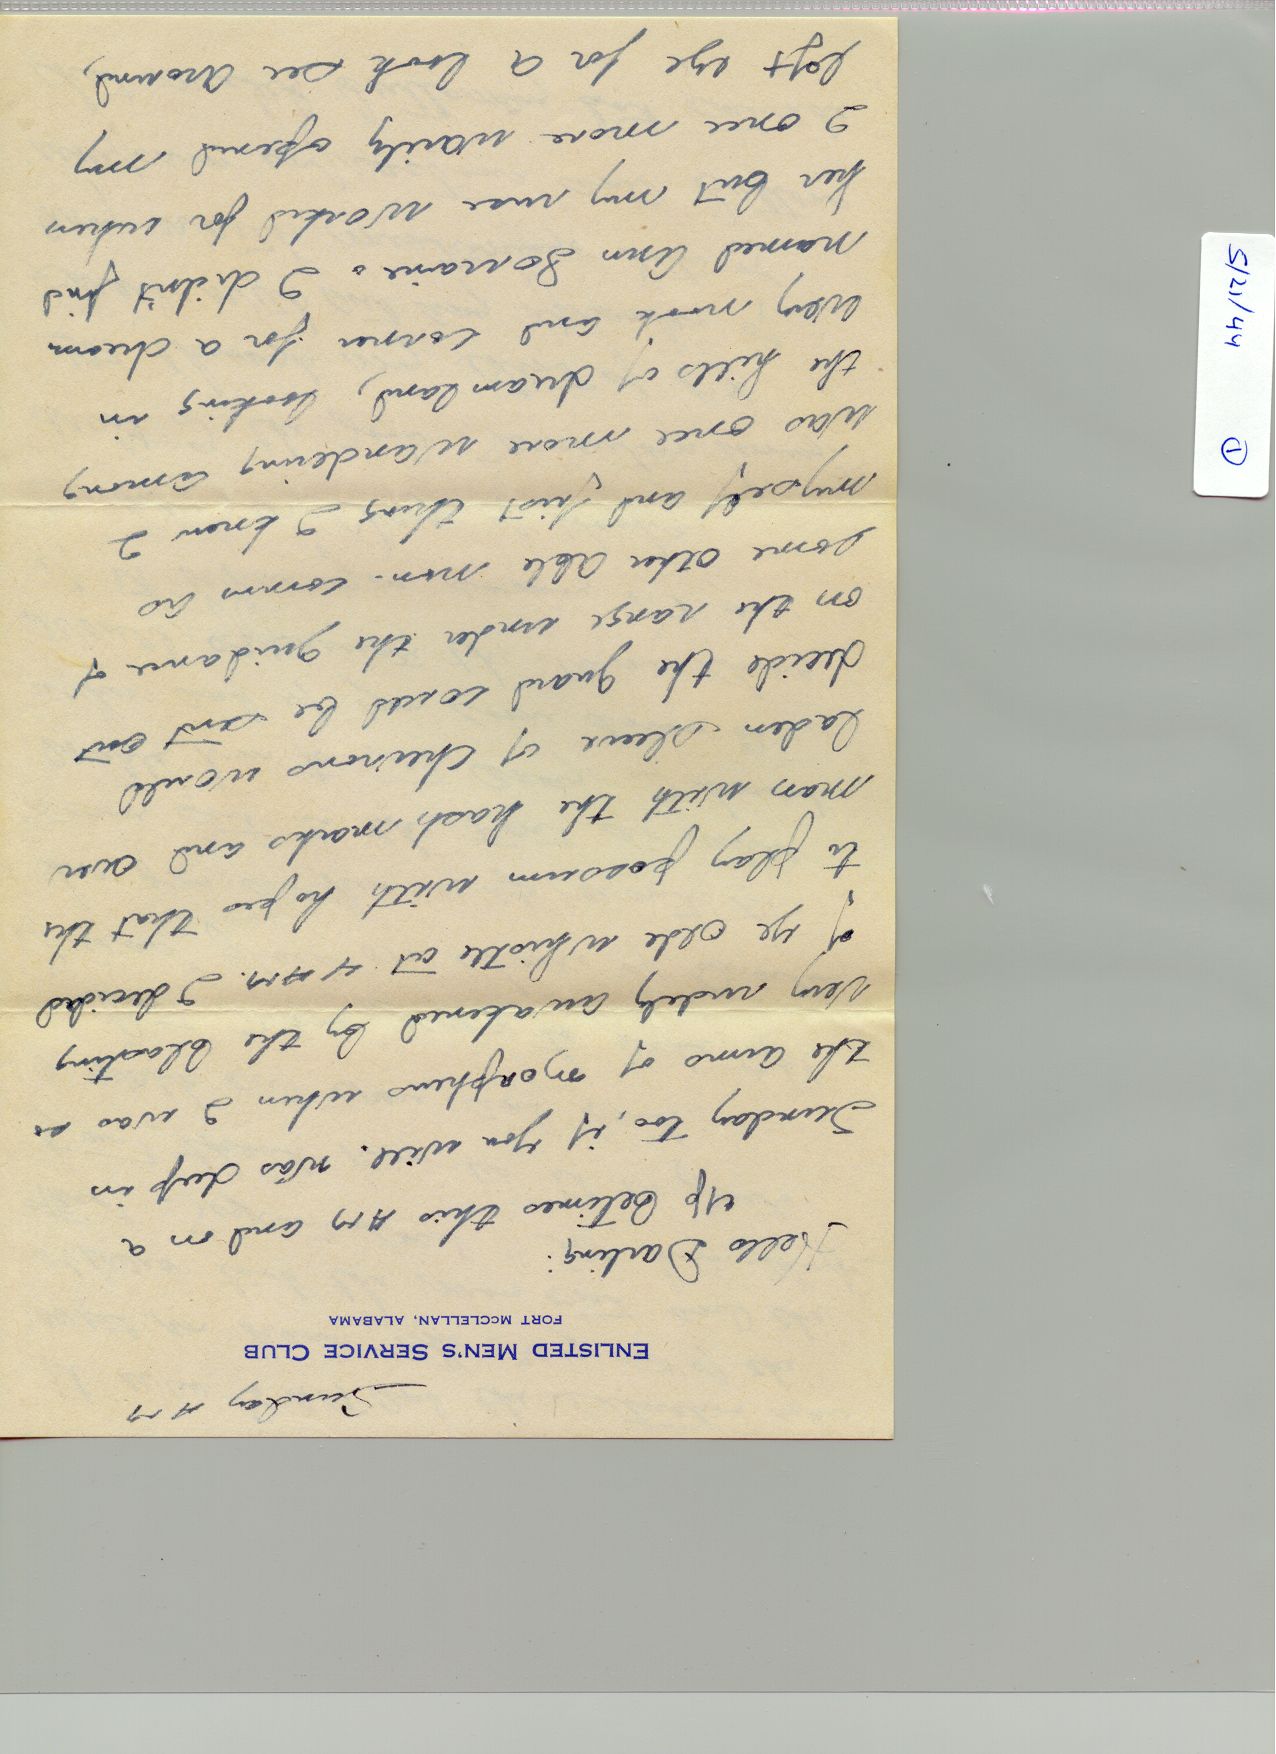 Sunday AM
ENLISTED MEN'S SERVICE CLUB
FORT McCLELLAN, ALABAMA
Hello Darling:
Up betimes this AM and on a
Sunday too, if you will. Was deep in
the arms of Morpheus when I was so
very rudely awakened by the blasting
of ye olde whistle at 4 AM. I decided
to play possum with hopes that the
man with the hash marks and over
laden sleeve of chevrons would
decide the guard could be sent out
on the range under the guidance of
some other able non-comm as
myself and first thing I know I
was once more wandering among
the hills of dreamland, looking in
every nook and corner for a dream
named Ann Lorraine. I didn't find
her but my ruse worked for when
I once more warily opened my
left eye for a look see around,
5/21/44 1